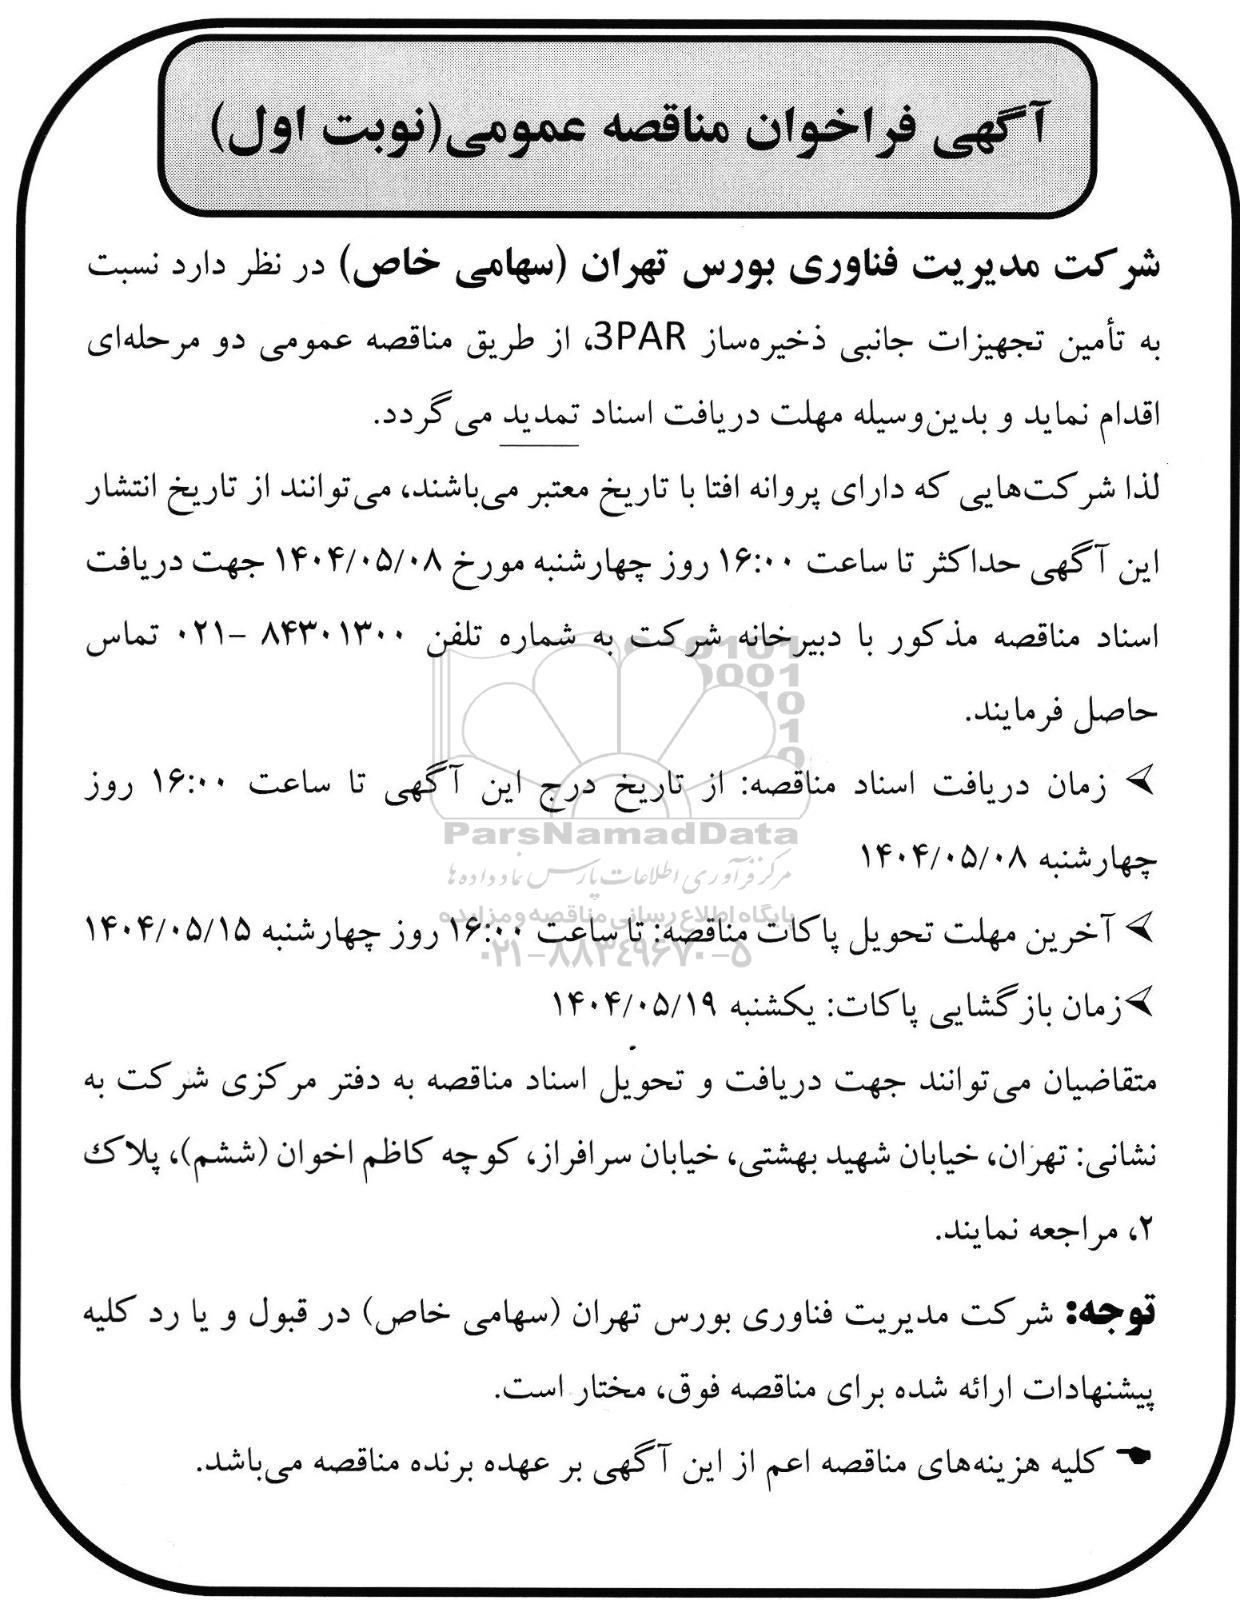 آگهی فراخوان مناقصه عمومی(نوبت اول)
شرکت مدیریت فناوری بورس تهران (سهامی خاص) در نظر دارد نسبت
به تأمین تجهیزات جانبی ذخیره‌ساز 3PAR، از طریق مناقصه عمومی دو مرحله‌ای
اقدام نماید و بدین‌وسیله مهلت دریافت اسناد تمدید می‌گردد.
لذا شرکت‌هایی که دارای پروانه افتا با تاریخ معتبر می‌باشند، می‌توانند از تاریخ انتشار
این آگهی حداکثر تا ساعت ۱۶:۰۰ روز چهارشنبه مورخ ۱۴۰۴/۰۵/۰۸ جهت دریافت
اسناد مناقصه مذکور با دبیرخانه شرکت به شماره تلفن ۸۴۳۰۱۳۰۰ -۰۲۱ تماس
حاصل فرمایند.
زمان دریافت اسناد مناقصه: از تاریخ درج این آگهی تا ساعت ۱۶:۰۰ روز
چهارشنبه ۱۴۰۴/۰۵/۰۸
ParsNamadData
مرکز فرآوری اطلاعات پارس نماد داده‌ها
پایگاه اطلاع رسانی مناقصه و مزایده
آخرین مهلت تحویل پاکات مناقصه: تا ساعت ۱۶:۰۰ روز چهارشنبه ۱۴۰۴/۰۵/۱۵
۰۲۱-۸۸۳۴۹۶۷۰-۵
زمان بازگشایی پاکات: یکشنبه ۱۴۰۴/۰۵/۱۹
متقاضیان می‌توانند جهت دریافت و تحویل اسناد مناقصه به دفتر مرکزی شرکت به
نشانی: تهران، خیابان شهید بهشتی، خیابان سرافراز، کوچه کاظم اخوان (ششم)، پلاک
۲، مراجعه نمایند.
توجه: شرکت مدیریت فناوری بورس تهران (سهامی خاص) در قبول و یا رد کلیه
پیشنهادات ارائه شده برای مناقصه فوق، مختار است.
کلیه هزینه‌های مناقصه اعم از این آگهی بر عهده برنده مناقصه می‌باشد.